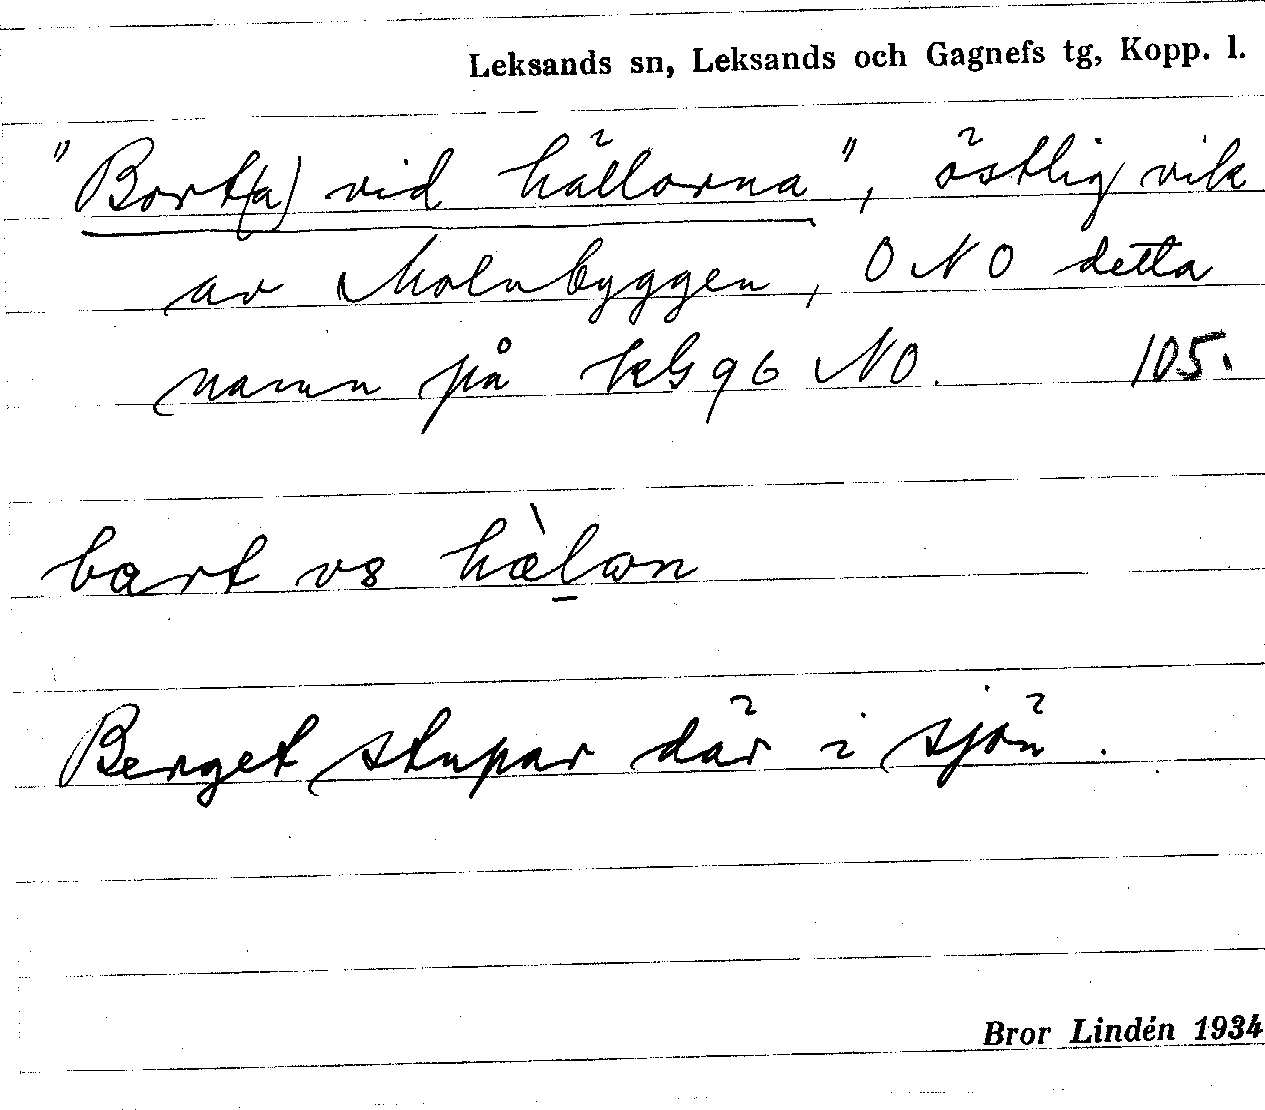 Leksands sn, Leksands och Gagnefs tg, Kopp. l.
"Bort(a) vid hällorna", östlig vik
av Molnbyggen, ONO detta
namn på kG 96 NO. 105.
bart vs hæ̀lon
Berget stupar där i sjön.
Bror Lindén 1934